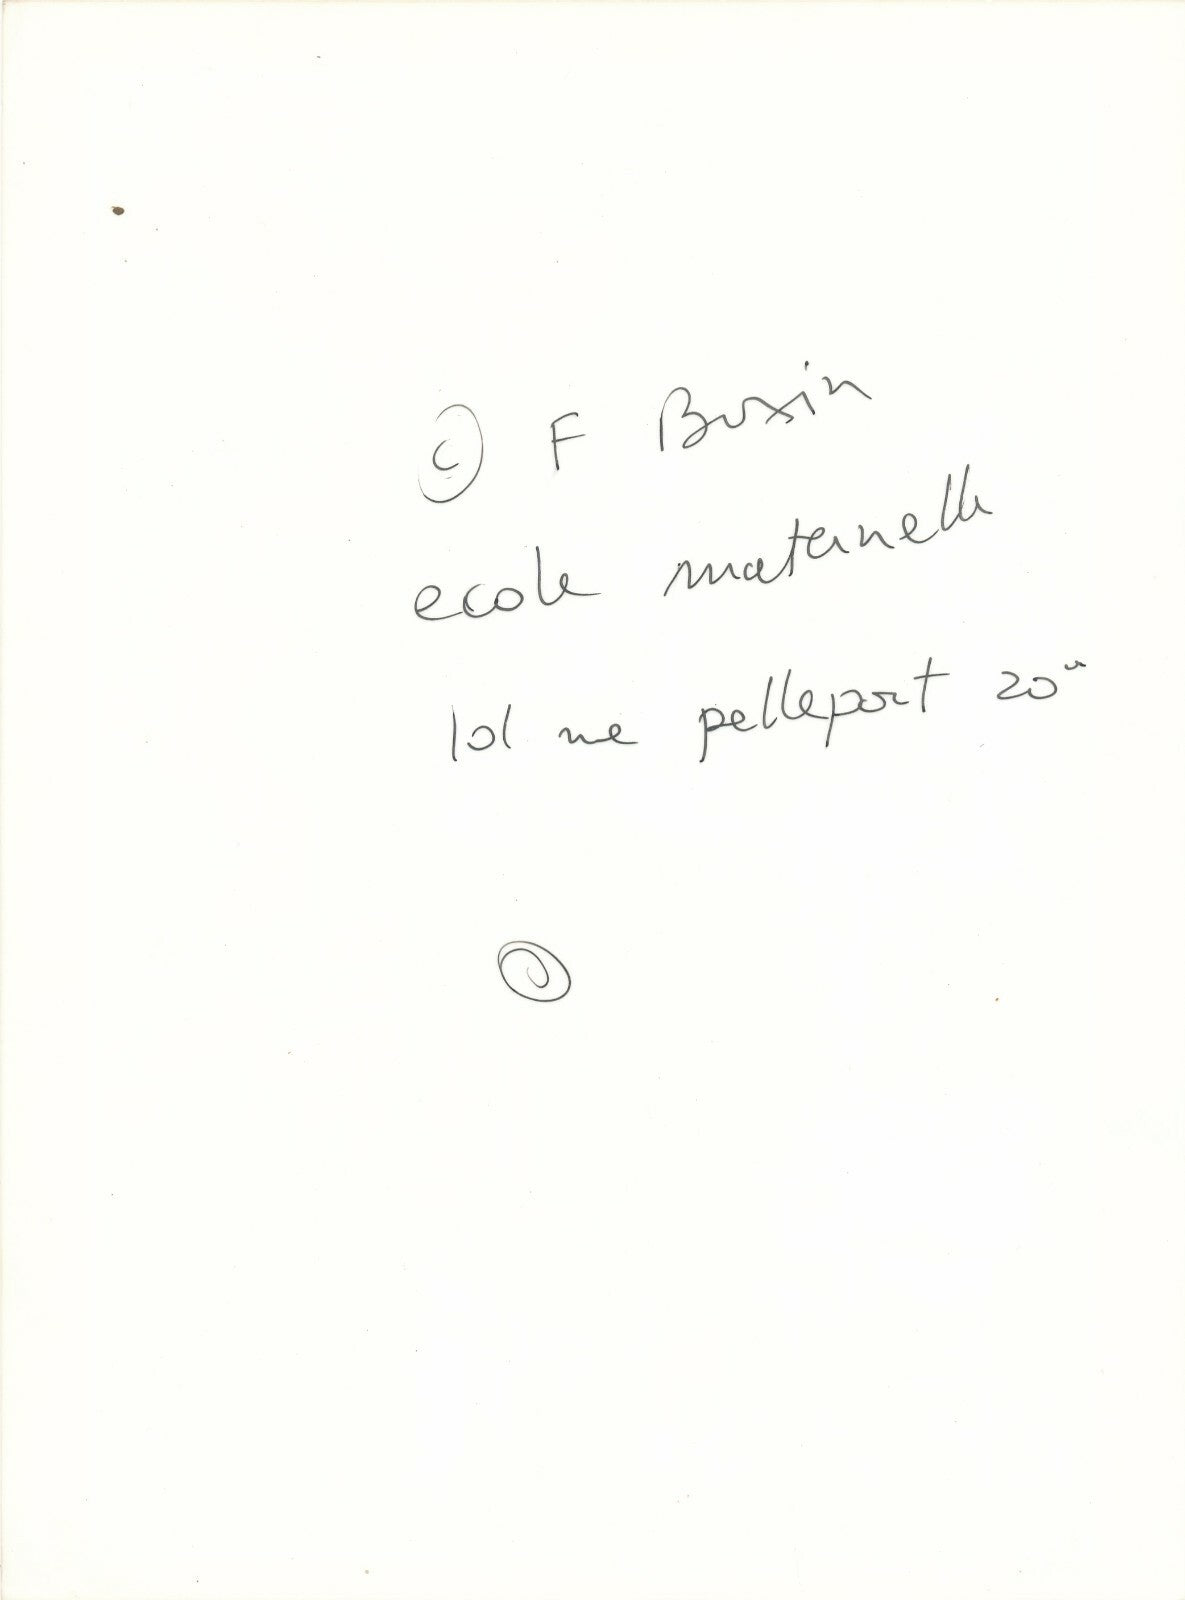 © F Buxin
ecole maternelle
101 rue pelleport 20e